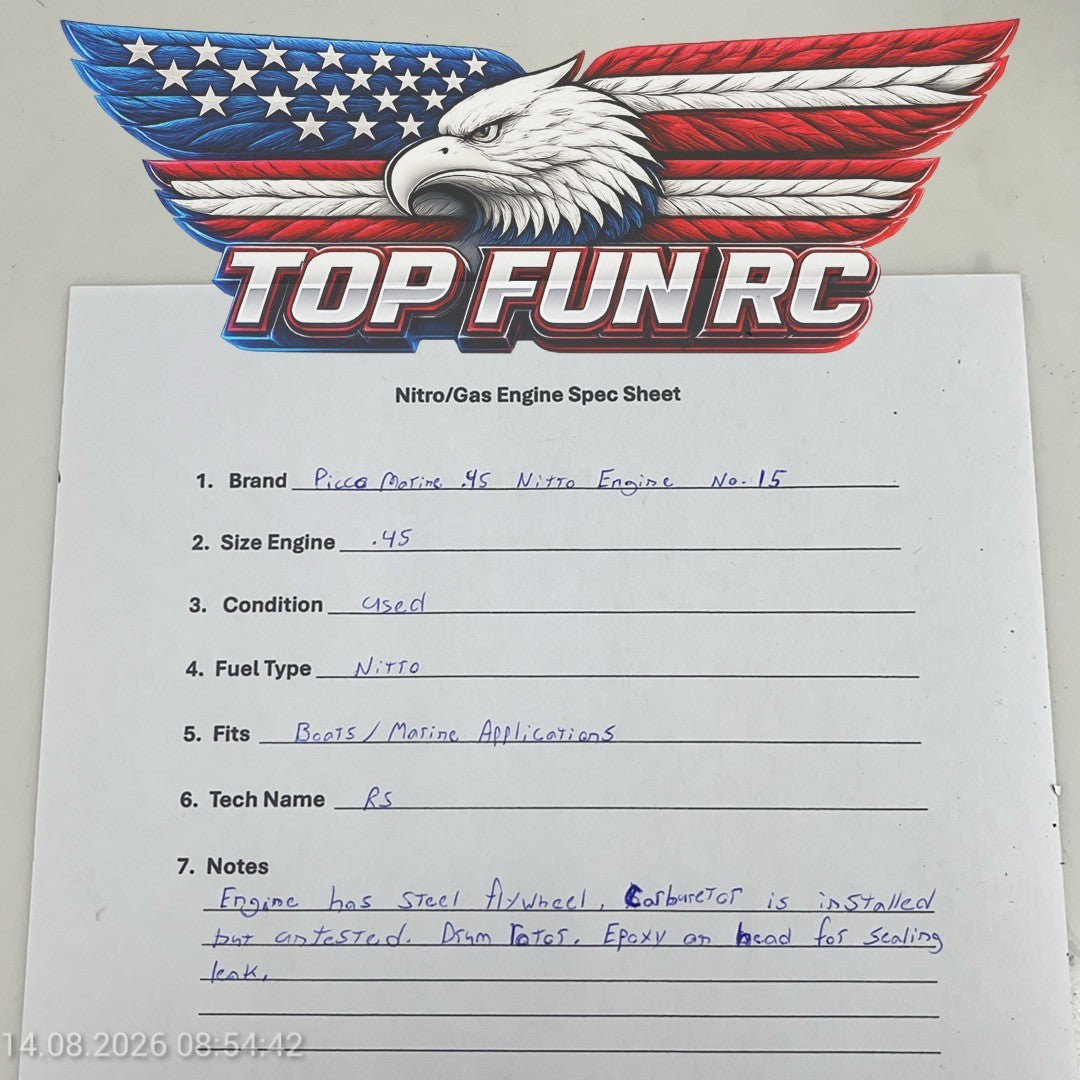 TOP FUN RC
Nitro/Gas Engine Spec Sheet
1. Brand Picco Marine .45 Nitro Engine No. 15
2. Size Engine .45
3. Condition used
4. Fuel Type Nitro
5. Fits Boats / Marine Applications
6. Tech Name RS
7. Notes
Engine has steel flywheel, Carburetor is installed
but untested. Drum rotor. Epoxy on head for sealing
leak.
14.08.2026 08:54:42